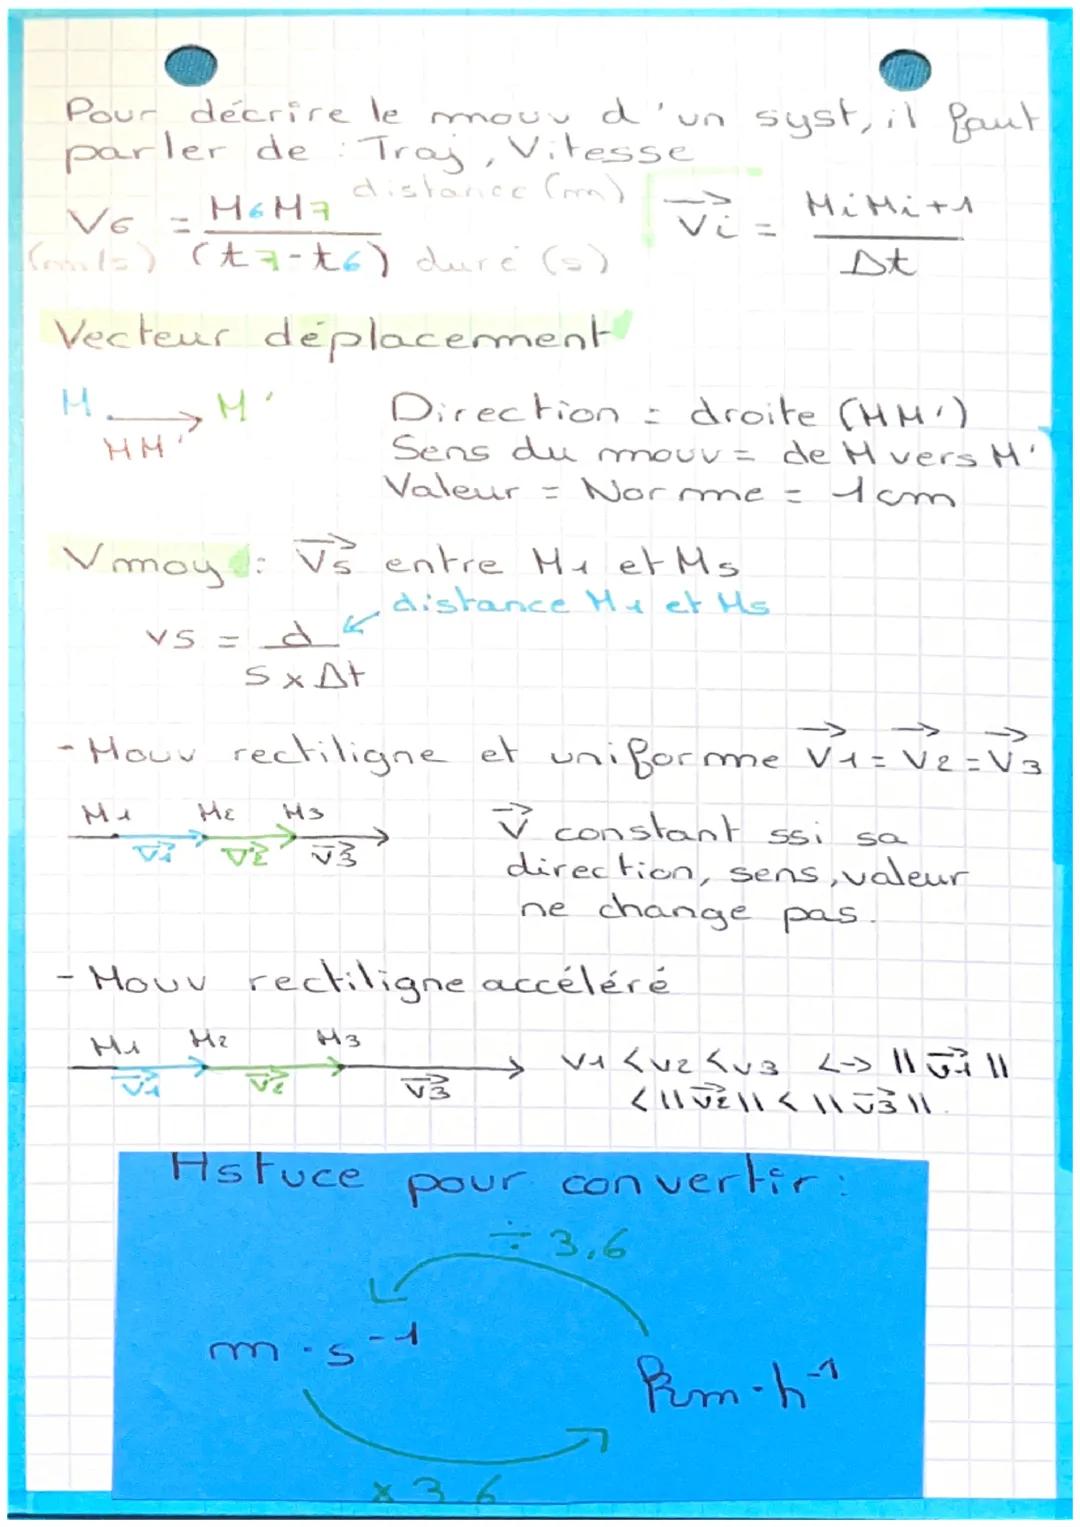 Pour décrire le mouv d'un syst, il faut
parler de : Traj, Vitesse
V6 (m/s) = M6M7 / (t7-t6) distance (m) duré (s)
→Vi = MiMi+1 / Δt
Vecteur déplacement
M → M'
MM'
Direction = droite (MM')
Sens du mouv = de M vers M'
Valeur = Norme = 1cm
Vmoy : →V5 entre M1 et M5
distance M1 et M5
v5 = d / 5 x Δt
- Mouv rectiligne et uniforme →V1 = →V2 = →V3
M1 M2 M3
→V1 →V2 →V3
→V constant ssi sa
direction, sens, valeur
ne change pas.
- Mouv rectiligne accéléré
M1 M2 M3
→V1 →V2 →V3
v1 < v2 < v3 <-> ||→v1||
< ||→v2|| < ||→v3||.
Astuce pour convertir :
÷ 3,6
m·s⁻¹
km·h⁻¹
x 3,6